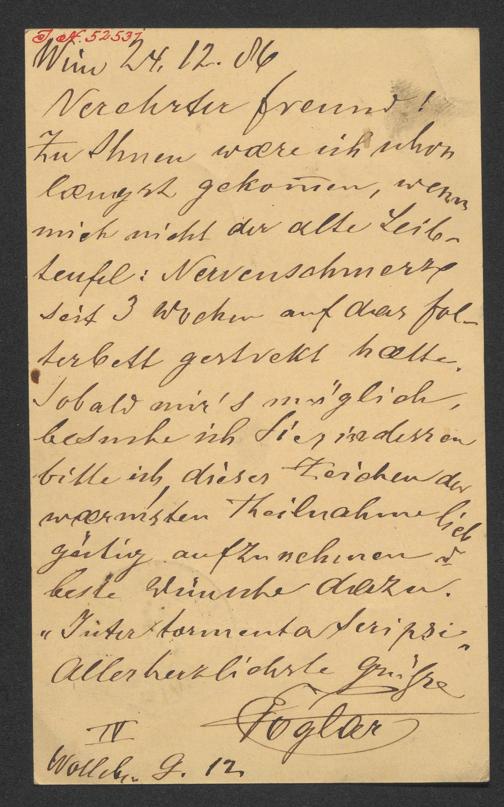 I. N. 52531
Wien 24.12.86
Verehrter Freund!
Zu Ihnen wære ich schon
længst gekom̄en, wenn
mich nicht der alte Leib-
teufel: Nervenschmerz
seit 3 Wochen auf das Fol-
terbett gestrekt hætte.
Sobald mir's möglich,
besuche ich Sie; indessen
bitte ich, dieses Zeichen der
wærmsten Theilnahme lieb
gütig aufzunehmen u
beste Wünsche dazu.
"Inter tormenta scripsi"
Allerherzlichste Grüße
Foglar
IV
G. 12